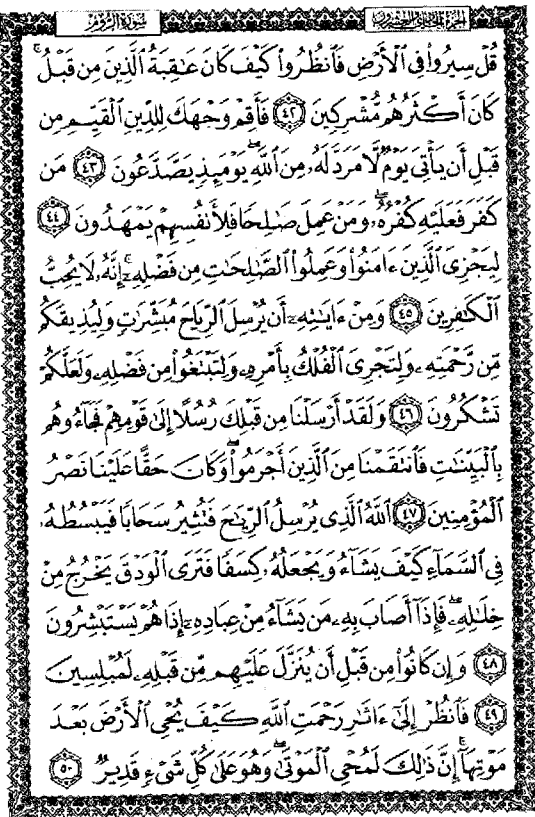 الجزء الحادي والعشرون
سورة الروم
قُلْ سِيرُوا۟ فِى ٱلْأَرْضِ فَٱنظُرُوا۟ كَيْفَ كَانَ عَـٰقِبَةُ ٱلَّذِينَ مِن قَبْلُ ۚ
كَانَ أَكْثَرُهُم مُّشْرِكِينَ ﴿٤٢﴾ فَأَقِمْ وَجْهَكَ لِلدِّينِ ٱلْقَيِّمِ مِن
قَبْلِ أَن يَأْتِىَ يَوْمٌ لَّا مَرَدَّ لَهُۥ مِنَ ٱللَّهِ ۖ يَوْمَئِذٍ يَصَّدَّعُونَ ﴿٤٣﴾ مَن
كَفَرَ فَعَلَيْهِ كُفْرُهُۥ ۖ وَمَنْ عَمِلَ صَـٰلِحًا فَلِأَنفُسِهِمْ يَمْهَدُونَ ﴿٤٤﴾
لِيَجْزِىَ ٱلَّذِينَ ءَامَنُوا۟ وَعَمِلُوا۟ ٱلصَّـٰلِحَـٰتِ مِن فَضْلِهِۦٓ ۚ إِنَّهُۥ لَا يُحِبُّ
ٱلْكَـٰفِرِينَ ﴿٤٥﴾ وَمِنْ ءَايَـٰتِهِۦٓ أَن يُرْسِلَ ٱلرِّيَاحَ مُبَشِّرَٰتٍ وَلِيُذِيقَكُم
مِّن رَّحْمَتِهِۦ وَلِتَجْرِىَ ٱلْفُلْكُ بِأَمْرِهِۦ وَلِتَبْتَغُوا۟ مِن فَضْلِهِۦ وَلَعَلَّكُمْ
تَشْكُرُونَ ﴿٤٦﴾ وَلَقَدْ أَرْسَلْنَا مِن قَبْلِكَ رُسُلًا إِلَىٰ قَوْمِهِمْ فَجَآءُوهُم
بِٱلْبَيِّنَـٰتِ فَٱنتَقَمْنَا مِنَ ٱلَّذِينَ أَجْرَمُوا۟ ۖ وَكَانَ حَقًّا عَلَيْنَا نَصْرُ
ٱلْمُؤْمِنِينَ ﴿٤٧﴾ ٱللَّهُ ٱلَّذِى يُرْسِلُ ٱلرِّيَـٰحَ فَتُثِيرُ سَحَابًا فَيَبْسُطُهُۥ
فِى ٱلسَّمَآءِ كَيْفَ يَشَآءُ وَيَجْعَلُهُۥ كِسَفًا فَتَرَى ٱلْوَدْقَ يَخْرُجُ مِنْ
خِلَـٰلِهِۦ ۖ فَإِذَآ أَصَابَ بِهِۦ مَن يَشَآءُ مِنْ عِبَادِهِۦٓ إِذَا هُمْ يَسْتَبْشِرُونَ
﴿٤٨﴾ وَإِن كَانُوا۟ مِن قَبْلِ أَن يُنَزَّلَ عَلَيْهِم مِّن قَبْلِهِۦ لَمُبْلِسِينَ
﴿٤٩﴾ فَٱنظُرْ إِلَىٰٓ ءَاثَـٰرِ رَحْمَتِ ٱللَّهِ كَيْفَ يُحْىِ ٱلْأَرْضَ بَعْدَ
مَوْتِهَآ ۚ إِنَّ ذَٰلِكَ لَمُحْىِ ٱلْمَوْتَىٰ ۖ وَهُوَ عَلَىٰ كُلِّ شَىْءٍ قَدِيرٌ ﴿٥٠﴾